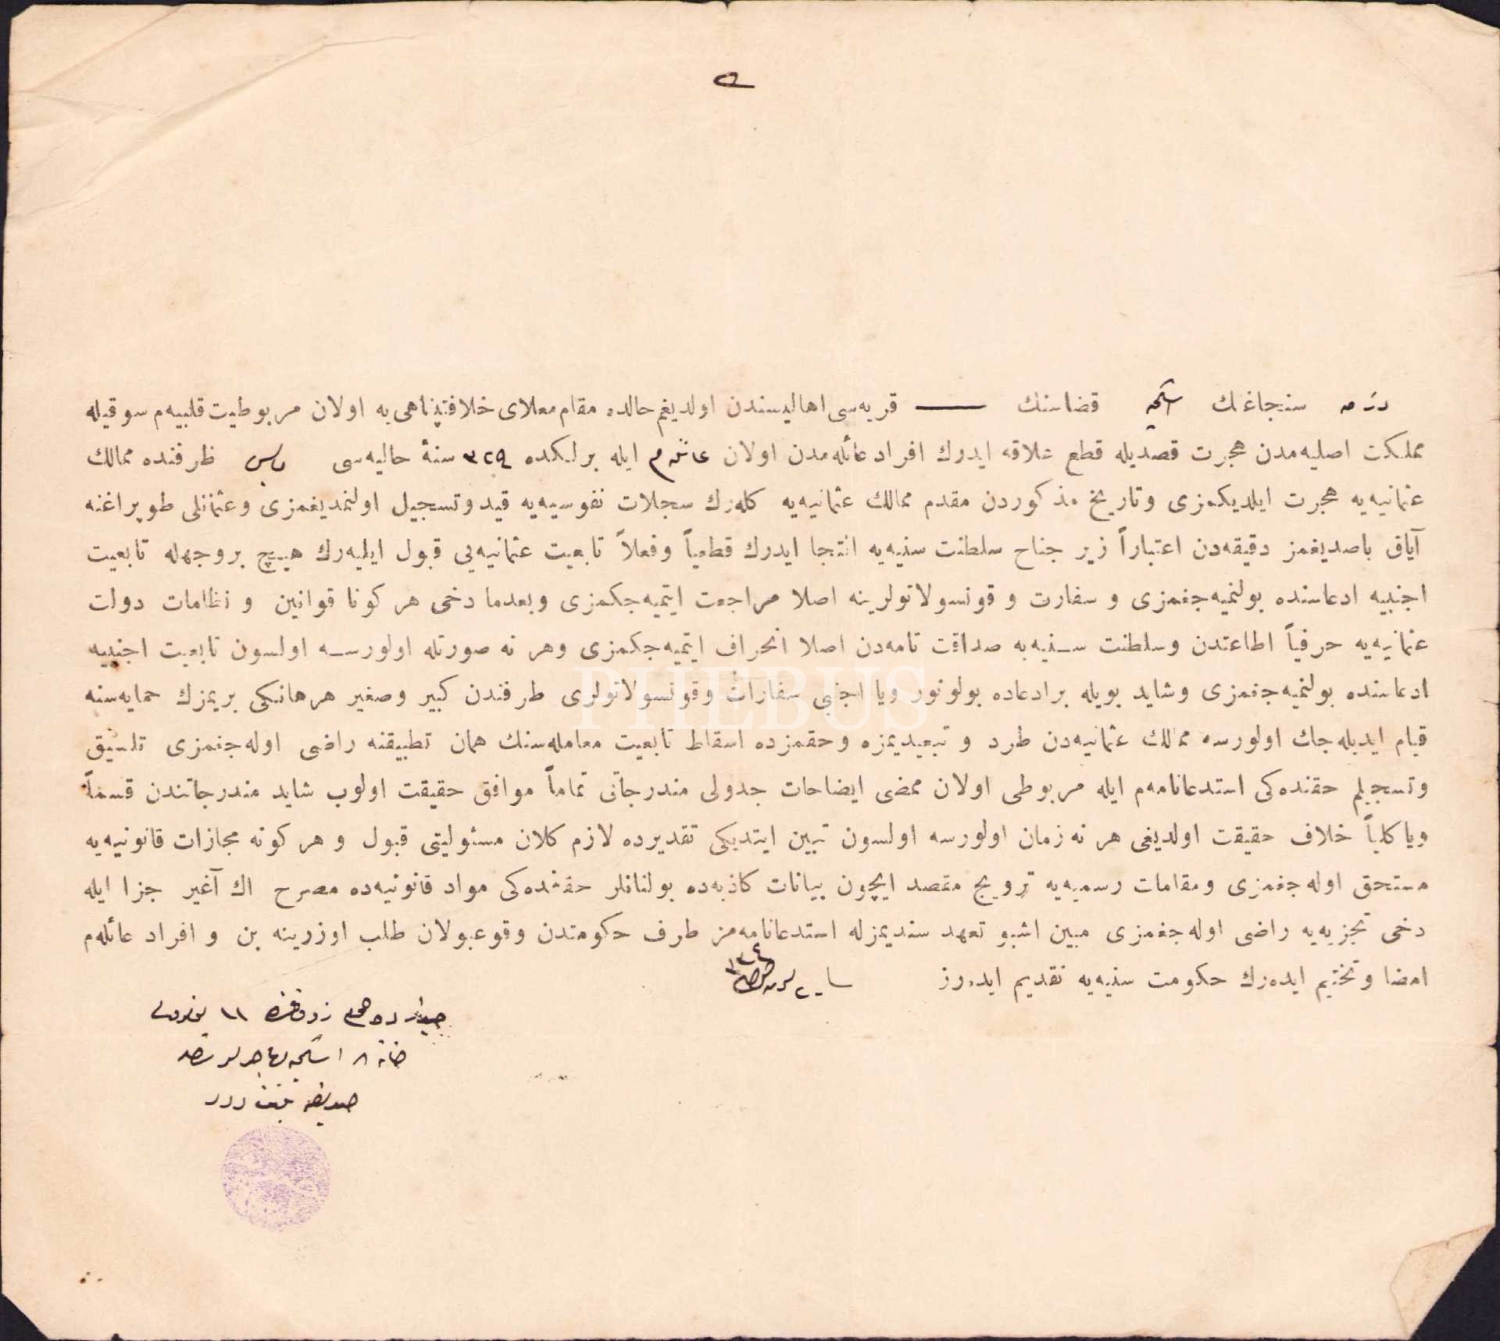 درامه سنجاغنك اسكچه قضاسنك ـــــ قریه‌سی اهالیسندن اولدیغم حالده مقام معلای خلافتپناهی‌یه اولان مربوطیت قلبیه‌م سوقیله
مملكت اصلیه‌مدن هجرت قصدیله قطع علاقه ایدرك افراد عائله‌مدن اولان عائله‌م ایله برلكده ٣٢٩ سنهٔ حالیه‌سی مارس ظرفنده ممالك
عثمانیه‌یه هجرت ایلدیكمزی وتاریخ مذكوردن مقدم ممالك عثمانیه‌یه كله‌رك سجلات نفوسیه‌یه قید وتسجیل اولنمدیغمزی وعثمانلی طوپراغنه
آیاق باصدیغمز دقیقه‌دن اعتباراً زیر جناح سلطنت سنیه‌یه التجا ایدرك قطعیاً وفعلاً تابعیت عثمانیه‌یی قبول ایلیه‌رك هیچ بروجهله تابعیت
اجنبیه ادعاسنده بولنمیه‌جغمزی و سفارت و قونسولاتولرینه اصلا مراجعت ایتمیه‌جكمزی وبعدما دخی هر كونا قوانین و نظامات دولت
عثمانیه‌یه حرفیاً اطاعتدن وسلطنت سـنیه‌یه صداقت تامه‌دن اصلا انحراف ایتمیه‌جكمزی وهر نه صورتله اولورسـه اولسون تابعیت اجنبیه
ادعاسنده بولنمیه‌جغمزی وشاید بویله برادعاده بولونور ویا اجنبی سفارات وقونسولاتولری طرفندن كبیر وصغیر هرهانكی بریمزك حمایه‌سنه
قیام ایدیله‌جك اولورسه ممالك عثمانیه‌دن طرد و تبعیدیمزه وحقمزده اسقاط تابعیت معامله‌سنك همان تطبیقنه راضی اوله‌جغمزی تلسیق
وتسجیلم حقنده‌كی استدعانامه‌م ایله مربوطی اولان ممضی ایضاحات جدولی مندرجاتی تماماً موافق حقیقت اولوب شاید مندرجاتندن قسماً
ویا كلیاً خلاف حقیقت اولدیغی هر نه زمان اولورسه اولسون تبین ایتدیكی تقدیرده لازم كلان مسئولیتی قبول و هر كونه مجازات قانونیه‌یه
مستحق اوله‌جغمزی ومقامات رسمیه‌یه ترویج مقصد ایچون بیانات كاذبه‌ده بولنانلر حقنده‌كی مواد قانونیه‌ده مصرح اك آغیر جزا ایله
دخی تجزیه‌یه راضی اوله‌جغمزی مبین اشبو تعهد سندیمزله استدعانامه‌مز طرف حكومتدن وقوعبولان طلب اوزرینه بن و افراد عائله‌م
امضا وتختیم ایده‌رك حكومت سنیه‌یه تقدیم ایدرز
خانه ٨ اسكچه مهاجرلرندن
PHEBUS